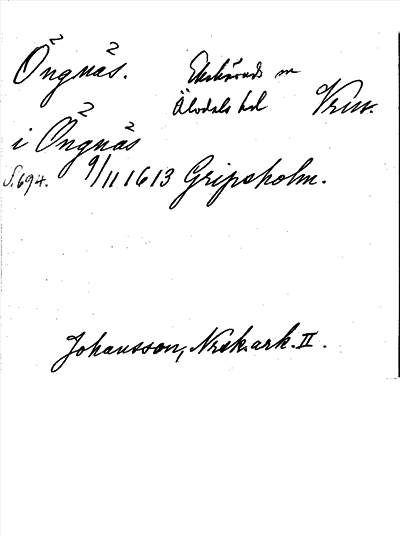 Öngnäs. Ekshärads sn
Älvdals hd Vrm.
i Öngnäs
S. 694. 9/11 1613 Gripsholm.
Johansson, Nrsk. ark. II.